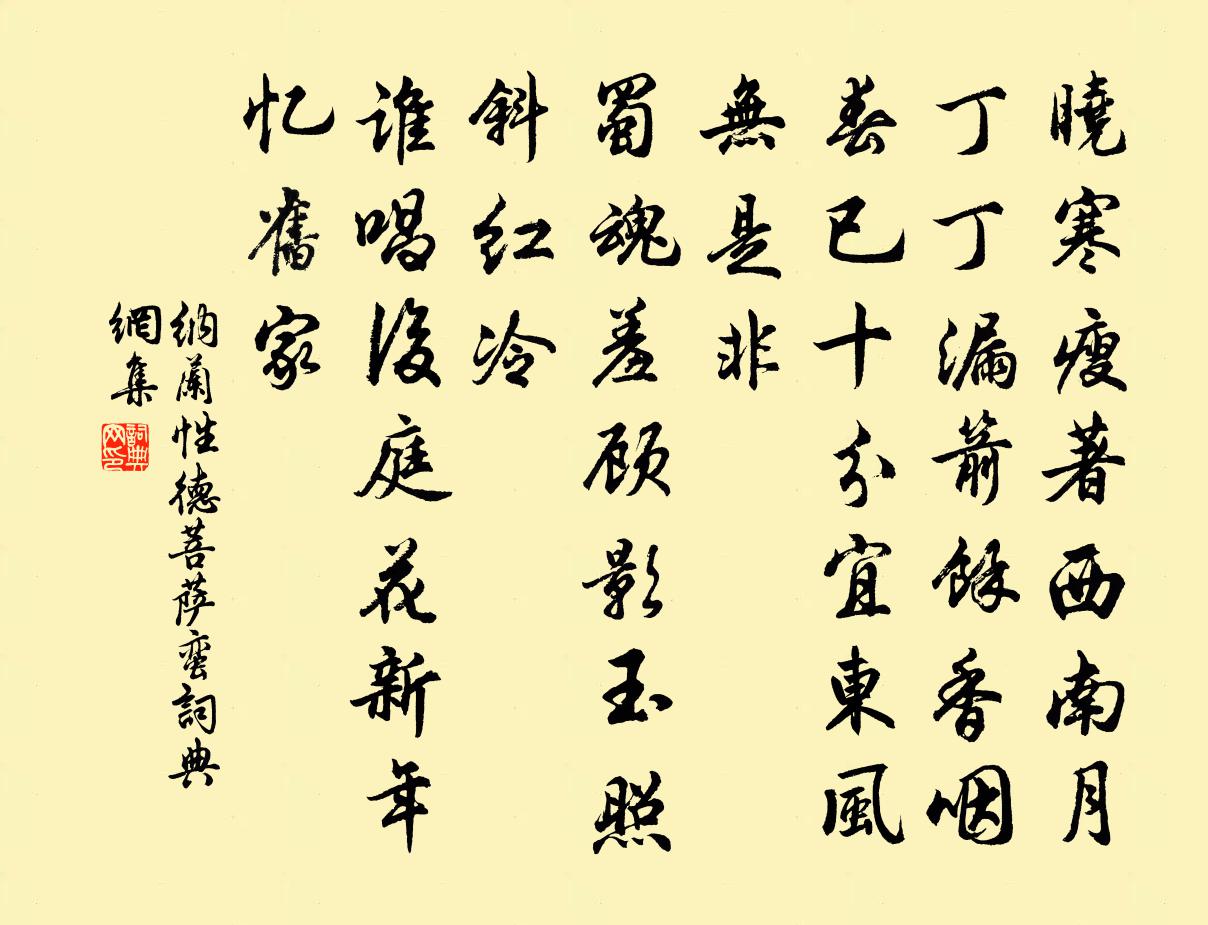 曉寒瘦著西南月
丁丁漏箭餘香咽
春已十分宜東風
無是非
蜀魂羞顾影玉照
斜红冷
誰唱後庭花新年
忆舊家
納蘭性德菩萨蛮詞典
網集
詞典网印